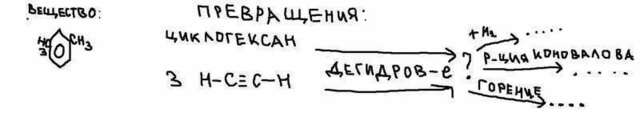 ВЕЩЕСТВО:
ПРЕВРАЩЕНИЯ:
HO
3
CH3
ЦИКЛОГЕКСАН
3 H-C≡C-H
ДЕГИДРОВ-е
?
+H2 .....
Р-ЦИЯ КОНОВАЛОВА
......
ГОРЕНИЕ
....